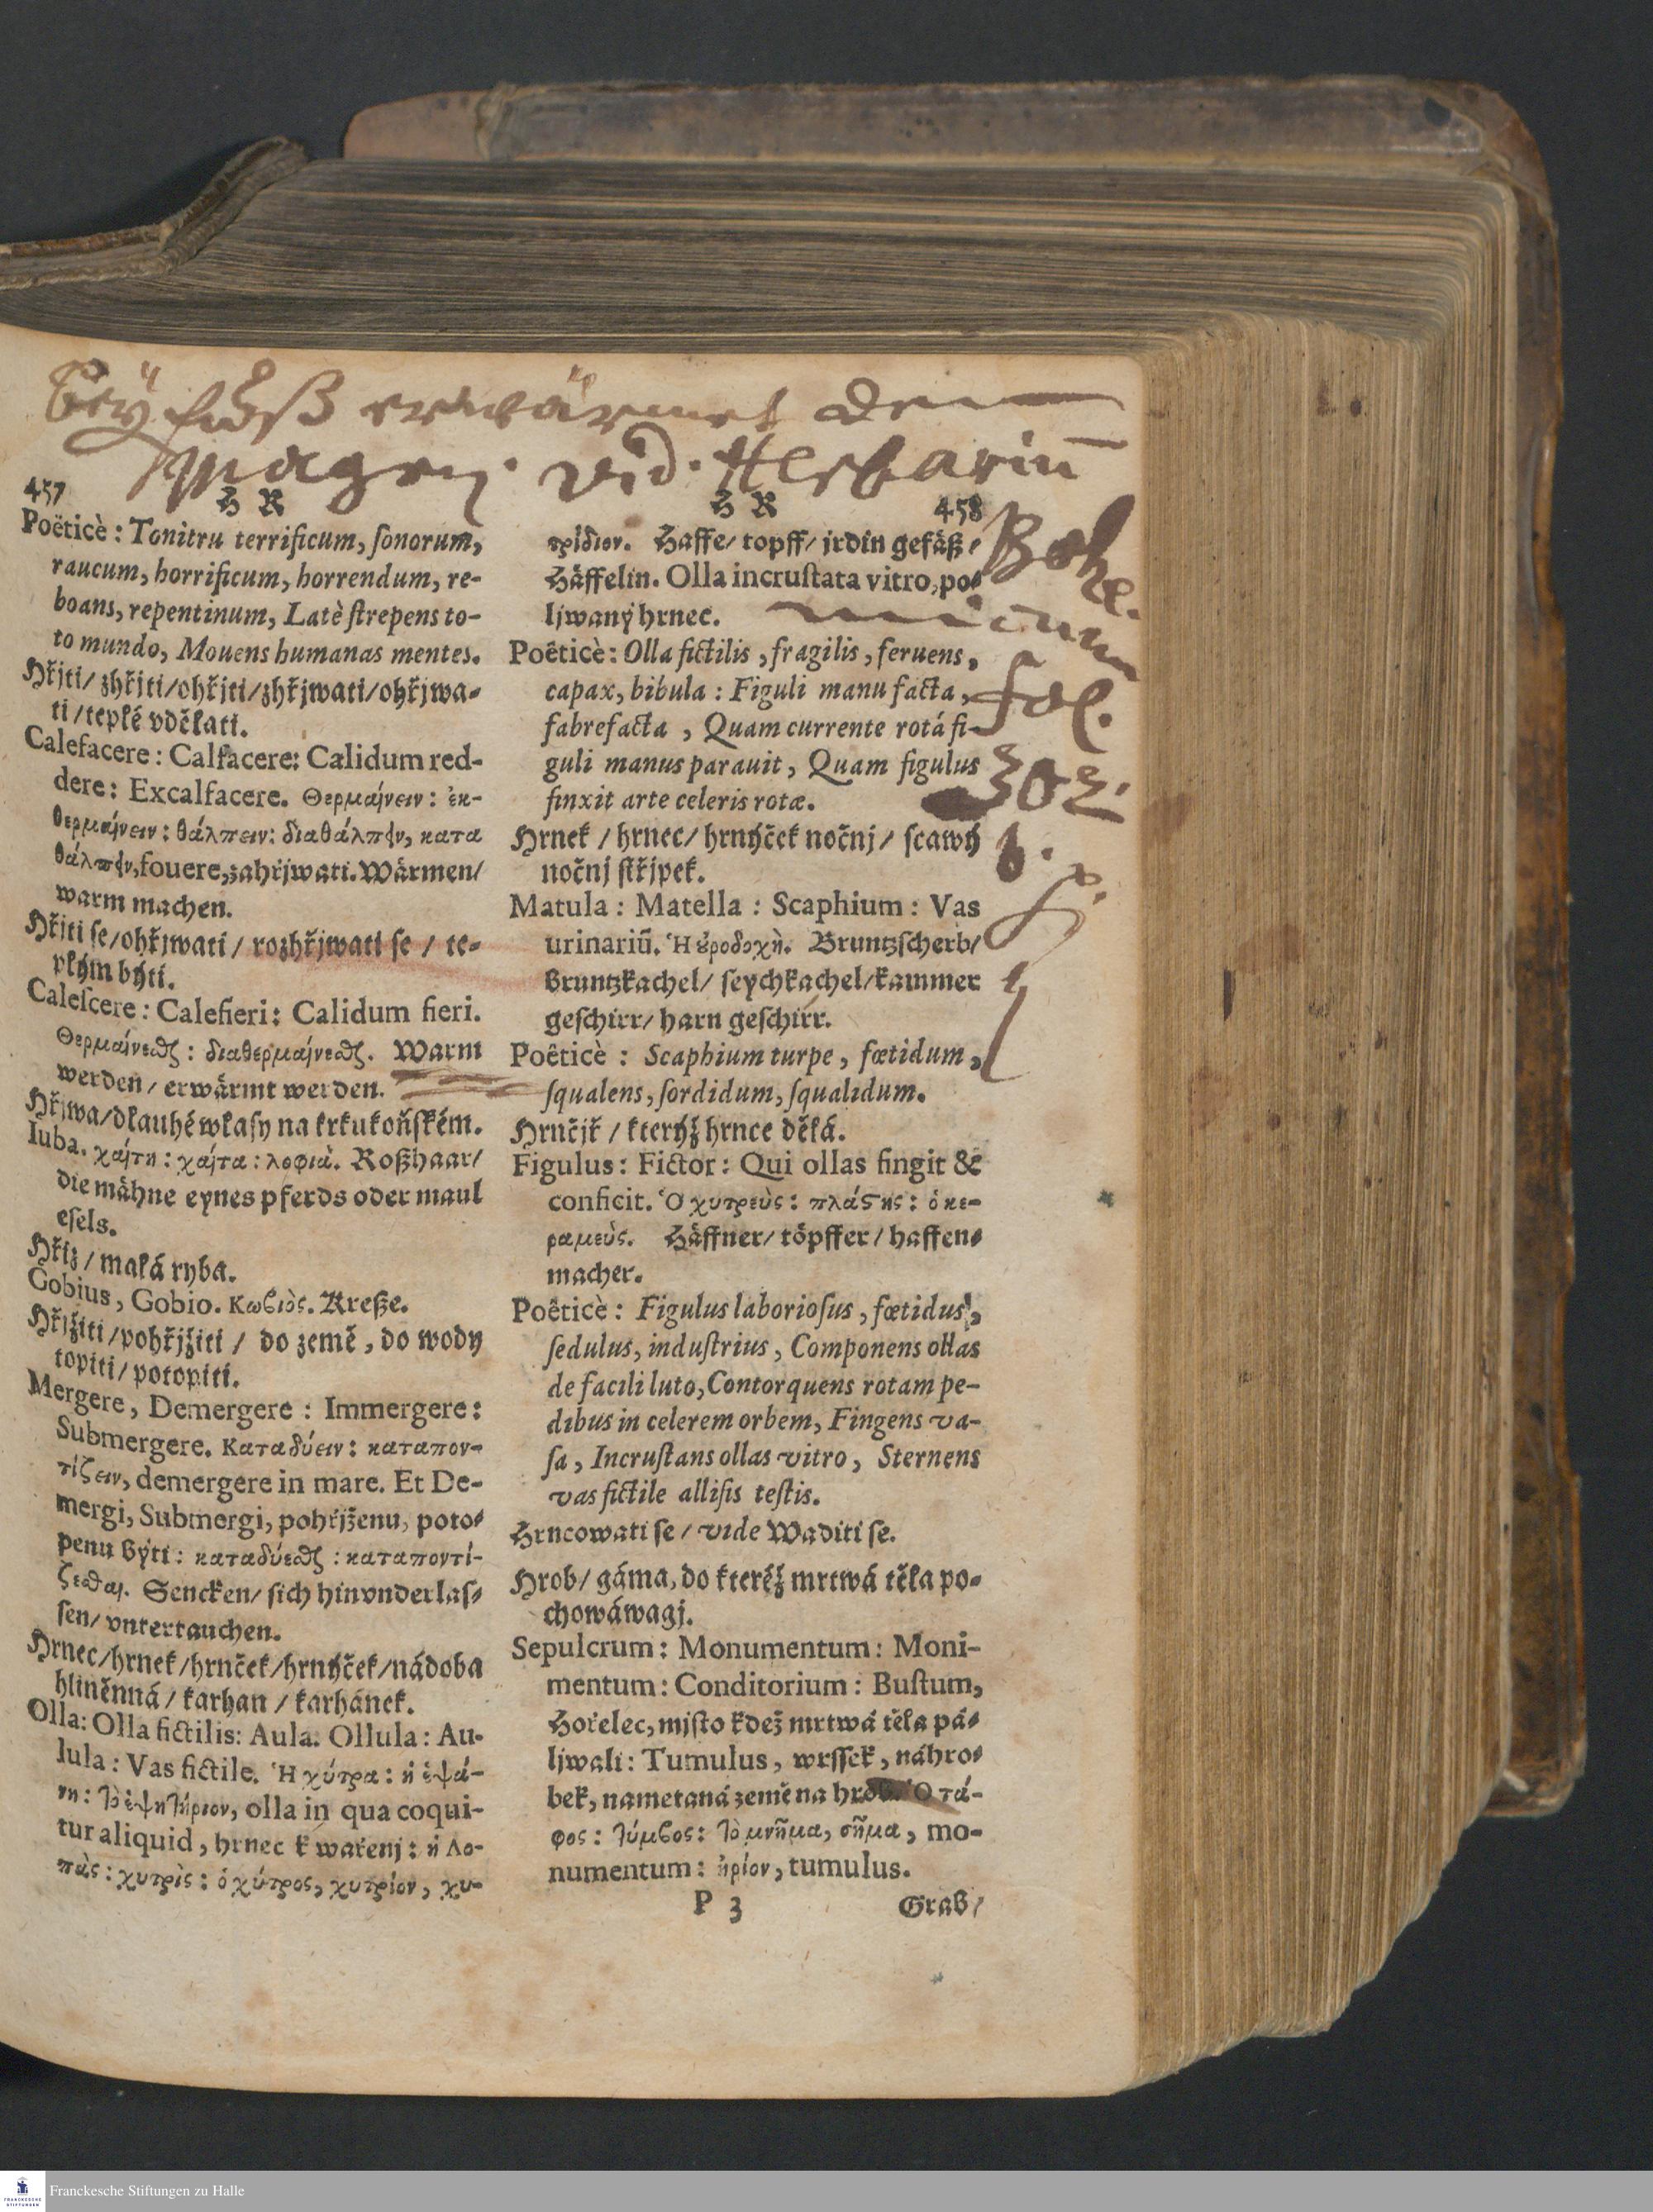 Beyfuß erwärmet den
Magen. vid. Herbariū
Bohe.
micum
fol.
b.
457
H R
Poëticè: Tonitru terrificum, ſonorum,
raucum, horrificum, horrendum, re-
boans, repentinum, Latè ſtrepens to-
to mundo, Mouens humanas mentes.
Hřjti/ zhřjti/ohřjti/zhřjwati/ohřjwa-
ti/tepłé vděłati.
Calefacere: Calfacere: Calidum red-
dere: Excalfacere. Θερμαίνειν: ἐκ-
θερμαίνειν: θάλπειν: διαθάλπειν, κατα
θάλπειν, fouere, zahřjwati. Wärmen/
warm machen.
Hřjti ſe/ohřjwati/ rozhřjwati ſe / te-
płým býti.
Caleſcere: Calefieri: Calidum fieri.
Θερμαίνεσθαι: διαθερμαίνεσθαι. Warm
werden/ erwärmt werden.
Hřjwa/dłauhé właſy na krku koňſkém.
Iuba. χαίτη: χαίτα: λοφιὰ. Roßhaar/
die mähne eynes pferds oder maul
eſels.
Hřjz/ małá ryba.
Gobius, Gobio. Κωβιὸς. Kreße.
Hřjžiti/pohřjžiti / do země, do wody
topiti/potopiti.
Mergere, Demergere: Immergere:
Submergere. Καταδύειν: καταπον-
τίζειν, demergere in mare. Et De-
mergi, Submergi, pohřjženu, poto-
penu býti: καταδύεσθαι: καταποντί-
ζεσθαι. Sencken/ ſich hinvnderlaſ-
ſen/ vntertauchen.
Hrnec/hrnek/hrnček/hrnýček/nádoba
hliněnná/ karhan/ karhánek.
Olla: Olla fictilis: Aula. Ollula: Au-
lula: Vas fictile. Ἡ χύτρα: ἡ ἑψά-
νη: τὸ ἑψητήριον, olla in qua coqui-
tur aliquid, hrnec k wařenj: ἡ λο-
πὰς: χυτρὶς: ὁ χύτρος, χυτρίον, χυ-
H R
458
τρίδιον. Haffe/ topff/ jrdin gefäß/
Häffelin. Olla incruſtata vitro, po-
ljwaný hrnec.
Poêticè: Olla fictilis, fragilis, feruens,
capax, bibula: Figuli manu facta,
fabrefacta, Quam currente rotá fi-
guli manus parauit, Quam figulus
finxit arte celeris rotæ.
Hrnek /hrnec/ hrnýček nočnj/ ſcawý
nočnj ſtřjpek.
Matula: Matella: Scaphium: Vas
urinariũ. Ἡ οὐροδοχὴ. Bruntzſcherb/
Bruntzkachel/ ſeychkachel/kammer
geſchirr/ harn geſchirr.
Poêticè: Scaphium turpe, fœtidum,
ſqualens, ſordidum, ſqualidum.
Hrnčjř / kterýž hrnce děłá.
Figulus: Fictor: Qui ollas fingit &
conficit. Ὁ χυτρεὺς: πλάστης: ὁ κε-
ραμεὺς. Häffner/ töpffer/ haffen-
macher.
Poêticè: Figulus laborioſus, fœtidus,
ſedulus, induſtrius, Componens ollas
de facili luto, Contorquens rotam pe-
dibus in celerem orbem, Fingens va-
ſa, Incruſtans ollas vitro, Sternens
vas fictile alliſis teſtis.
Hrncowati ſe/ vide Waditi ſe.
Hrob/ gáma, do kteréž mrtwá těła po-
chowáwagj.
Sepulcrum: Monumentum: Moni-
mentum: Conditorium: Buſtum,
Hořelec, mjſto kdež mrtwá těła pá-
ljwali: Tumulus, wrſſek, náhro-
bek, nametaná země na hrob. Ὁ τά-
φος: τύμβος: τὸ μνῆμα, σῆμα, mo-
numentum: ἠρίον, tumulus.
P 3
Grab/
Franckesche Stiftungen zu Halle